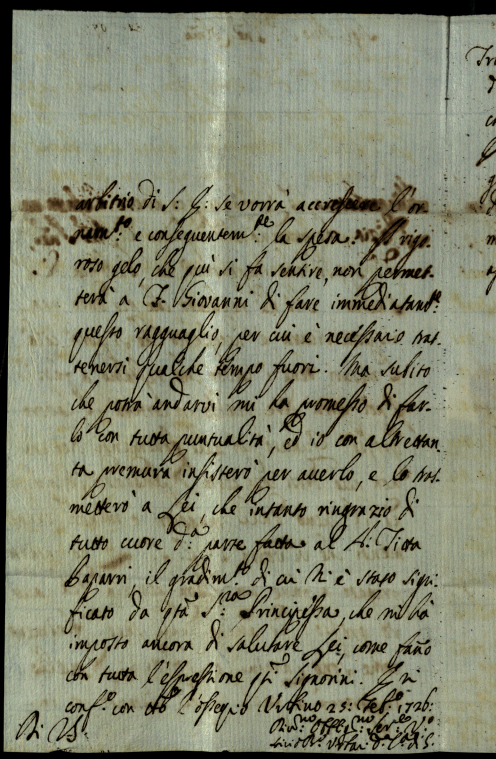 arbitrio di S: E: se vorrà accrescere l'or-
nam.to e conseguentem.te la spesa. Il rigo-
roso gelo, che quì si fa sentire, non permet-
terà a F. Giovanni di fare immediatam.te
questo ragguaglio, per cui è necessario trat-
tenersi qualche tempo fuori. Ma subito
che potrà andarvi mi ha promesso di far-
lo con tutta puntualità, ed io con altrettan-
ta premura insisterò per averlo, e lo tras-
metterò a Lei, che intanto ringrazio di
tutto cuore d.a parte fatta al
il gradim.to di cui mi è stato signi-
ficato da q.ta S.ra Principessa, che mi hà
imposto ancora di salutare Lei, come fanno
con tutta l'espressione q.ti Signorini. E mi
conf.o con ott.o l'ossequio Urbino 25: Feb.o 1726:
Di VS.